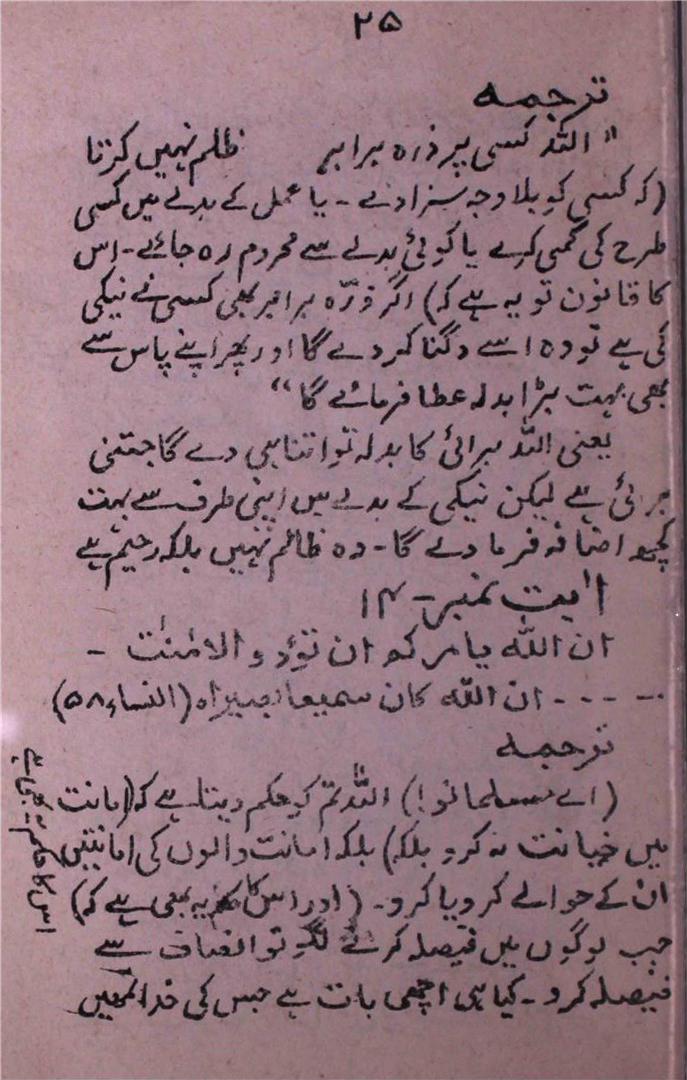 ۲۵
ترجمہ
" اللہ کسی پر ذرہ برابر ظلم نہیں کرتا
(کہ کسی کو بلا وجہ سزا دے ۔ یا عمل کے بدلے میں کسی
طرح کی کمی کرے یا کوئی بدلے سے محروم رہ جائے ۔ اس
کا قانون تو یہ ہے کہ) اگر ذرّہ برابر بھی کسی نے نیکی
کی ہے تو وہ اسے دگنا کر دے گا اور پھر اپنے پاس سے
بھی بہت بڑا بدلہ عطا فرمائے گا "
یعنی اللہ برائی کا بدلہ تو اتنا ہی دے گا جتنی
برائی ہے لیکن نیکی کے بدلے میں اپنی طرف سے بہت
کچھ اضافہ فرما دے گا ۔ وہ ظالم نہیں بلکہ رحیم ہے
آیت نمبر ۔ ۱۴
ان اللہ یامرکم ان تؤدوالامٰنٰت ۔
۔ ۔ ۔ ۔ ان اللہ کان سمیعا بصیراہ (النساء ۵۸)
ترجمہ
(اے مسلمانو!) اللہ تم کو حکم دیتا ہے کہ (امانت
میں خیانت نہ کرو بلکہ) بلکہ امانت والوں کی امانتیں
ان کے حوالے کر دیا کرو ۔ (اور اس کا یہ بھی ہے کہ)
جب لوگوں میں فیصلہ کرنے لگو تو انصاف سے
فیصلہ کرو ۔ کیا ہی اچھی بات ہے جس کی خدا تمھیں
اس کا حکم یہ بھی ہے